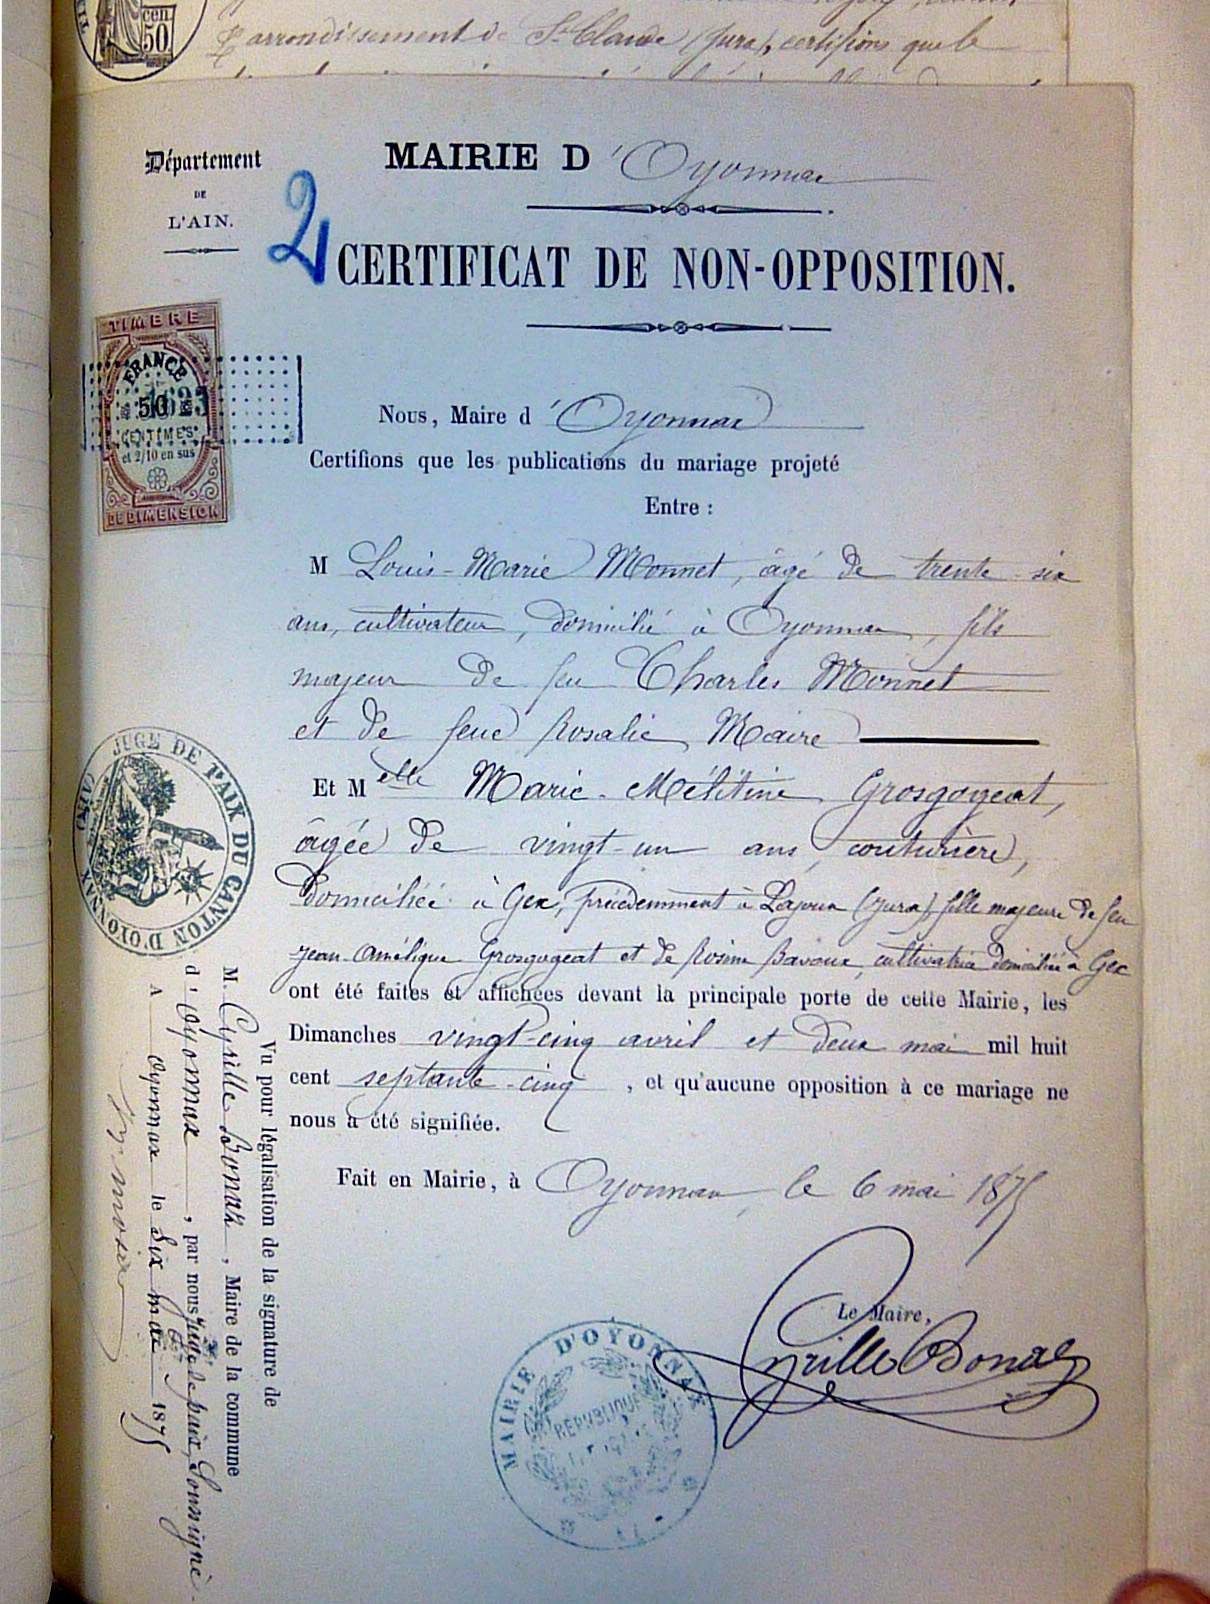 cen
50
l'arrondissement de St Claude (Jura), certifions que le
Département
DE
L'AIN.
MAIRIE D'Oyonnax
2
CERTIFICAT DE NON-OPPOSITION.
TIMBRE
FRANCE
50
CENTIMES
et 2/10 en sus
DE DIMENSION
Nous, Maire d'Oyonnax
Certifions que les publications du mariage projeté
Entre :
M Louis-Marie Monnet, âgé de trente-six
ans, cultivateur, domicilié à Oyonnax, fils
majeur de feu Charles Monnet
et de feue Rosalie Maire
Et Melle Marie-Mélitine Grosgogeat,
âgée de vingt-un ans, couturière,
domiciliée à Gex, précédemment à Lajoux (Jura), fille majeure de feu
Jean-Amélique Grosgogeat et de Rosine Bavoux, cultivatrice domiciliée à Gex
ont été faites et affichées devant la principale porte de cette Mairie, les
Dimanches vingt-cinq avril et deux mai mil huit
cent septante-cinq, et qu'aucune opposition à ce mariage ne
nous a été signifiée.
Fait en Mairie, à Oyonnax, le 6 mai 1875
Le Maire,
Cyrille Bonaz
MAIRIE D'OYONNAX
REPUBLIQUE
JUGE DE PAIX DU CANTON D'OYONNAX (AIN)
Vu pour légalisation de la signature de
M. Cyrille Bonaz, Maire de la commune
d'Oyonnax, par nous Juge de paix, soussigné
A Oyonnax le six mai 1875